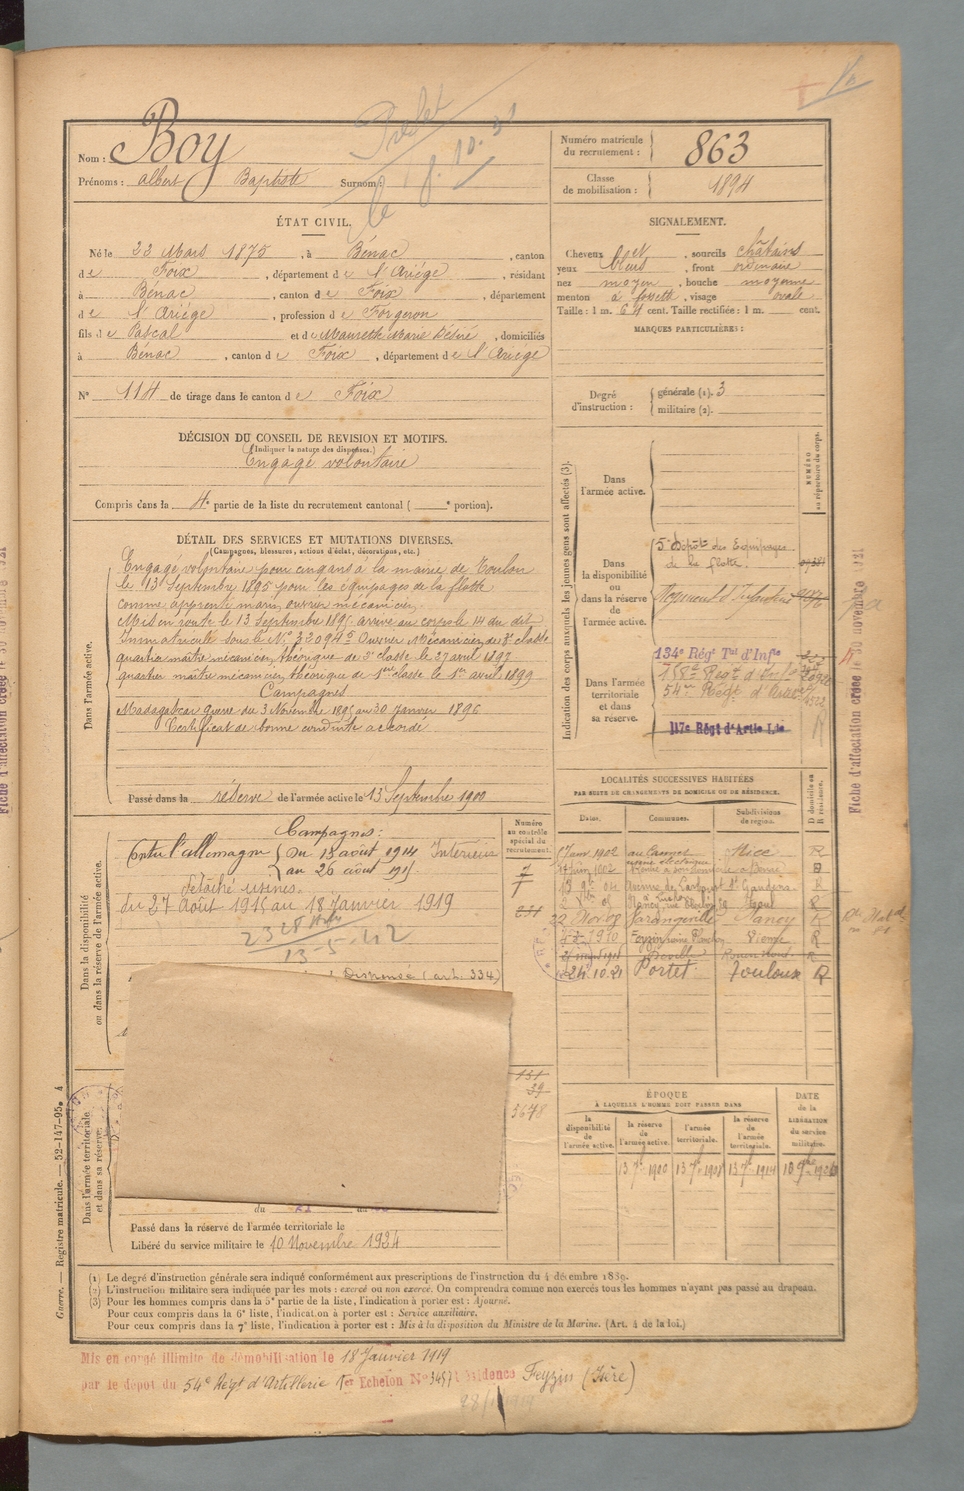 Nom : Boy
Prénoms : albert Baptiste Surnom :
Numéro matricule du recrutement : 863
Classe de mobilisation : 1894
ÉTAT CIVIL.
Né le 23 Mars 1875, à Bénac, canton
de Foix, département de l'Ariége, résidant
à Bénac, canton de Foix, département
de l'Ariége, profession de Forgeron
fils de Pascal et de Maurette Marie Désiré, domiciliés
à Bénac, canton de Foix, département de l'Ariége
N° 114 de tirage dans le canton de Foix
SIGNALEMENT.
Cheveux , sourcils châtains
yeux bleus, front ordinaire
nez moyen, bouche moyenne
menton à fossette, visage ovale
Taille : 1 m. 64 cent. Taille rectifiée : 1 m. cent.
MARQUES PARTICULIÈRES :
Degré d'instruction : générale (1). 3
militaire (2).
DÉCISION DU CONSEIL DE REVISION ET MOTIFS.
(Indiquer la nature des dispenses.)
Engagé volontaire
Compris dans la 4e partie de la liste du recrutement cantonal ( e portion).
DÉTAIL DES SERVICES ET MUTATIONS DIVERSES.
(Campagnes, blessures, actions d'éclat, décorations, etc.)
Dans l'armée active.
Engagé volontaire pour cinq ans à la mairie de Toulon
le 13 Septembre 1895 pour les équipages de la flotte
comme apprenti marin, ouvrier mécanicien.
Mis en route le 13 Septembre 1895 arrivé au corps le 14 du dit
Immatriculé sous le N° 32094 Ouvrier Mécanicien de 3e classe
quartier maître mécanicien théorique de 3e classe le 27 avril 1897
quartier maître mécanicien théorique de 1ère classe le 1er avril 1899
Campagnes
Madagascar guerre du 3 Novembre 1895 au 30 Janvier 1896
Certificat de bonne conduite accordé
Passé dans la réserve de l'armée active le 13 Septembre 1900
Indication des corps auxquels les jeunes gens sont affectés (3).
NUMÉRO au répertoire du corps.
Dans l'armée active.
Dans la disponibilité ou dans la réserve de l'armée active.
5e Dépôt des Equipages de la flotte.
Régiment d'Infanterie
Dans l'armée territoriale et dans sa réserve.
134e Régt Tal d'Infie
158e Régt d'Infie
54me Régt d'Artie
117e Régt d'Artie Lde
Dans la disponibilité ou dans la réserve de l'armée active.
Numéro au contrôle spécial du recrutement.
Campagnes :
Contre l'allemagne du 15 août 1914 Intérieur
au 26 août 1915
détaché usines.
du 27 Août 1915 au 18 Janvier 1919
13-5-42
Dispensé (art. 334)
131
39
3678
LOCALITÉS SUCCESSIVES HABITÉES
PAR SUITE DE CHANGEMENTS DE DOMICILE OU DE RÉSIDENCE.
Dates. Communes. Subdivisions de région. D domicile ou R résidence.
Janv 1902 au Cannet Nice R
22 Nov 08 Varangeville Nancy R
1910 Vienne R
24.10.21 Portet Toulouse R
ÉPOQUE
À LAQUELLE L'HOMME DOIT PASSER DANS
la disponibilité de l'armée active. la réserve de l'armée active. l'armée territoriale. la réserve de l'armée territoriale.
DATE de la LIBÉRATION du service militaire.
13 7bre 1900 13 7bre 1908 13 7bre 1914 10 9bre 1920
Dans l'armée territoriale et dans sa réserve.
Passé dans la réserve de l'armée territoriale le
Libéré du service militaire le 10 Novembre 1924
(1) Le degré d'instruction générale sera indiqué conformément aux prescriptions de l'instruction du 4 décembre 1889.
(2) L'instruction militaire sera indiquée par les mots : exercé ou non exercé. On comprendra comme non exercés tous les hommes n'ayant pas passé au drapeau.
(3) Pour les hommes compris dans la 5e partie de la liste, l'indication à porter est : Ajourné.
Pour ceux compris dans la 6e liste, l'indication à porter est : Service auxiliaire.
Pour ceux compris dans la 7e liste, l'indication à porter est : Mis à la disposition du Ministre de la Marine. (Art. 4 de la loi.)
Mis en congé illimité de démobilisation le 18 Janvier 1919
par le dépôt du 54e Régt d'Artillerie 1er Echelon N° 3457 résidence Feyzin (Isère)
Guerre. — Registre matricule. — 52-147-95. 4
Fiche d'affectation créée le 30 novembre 1921